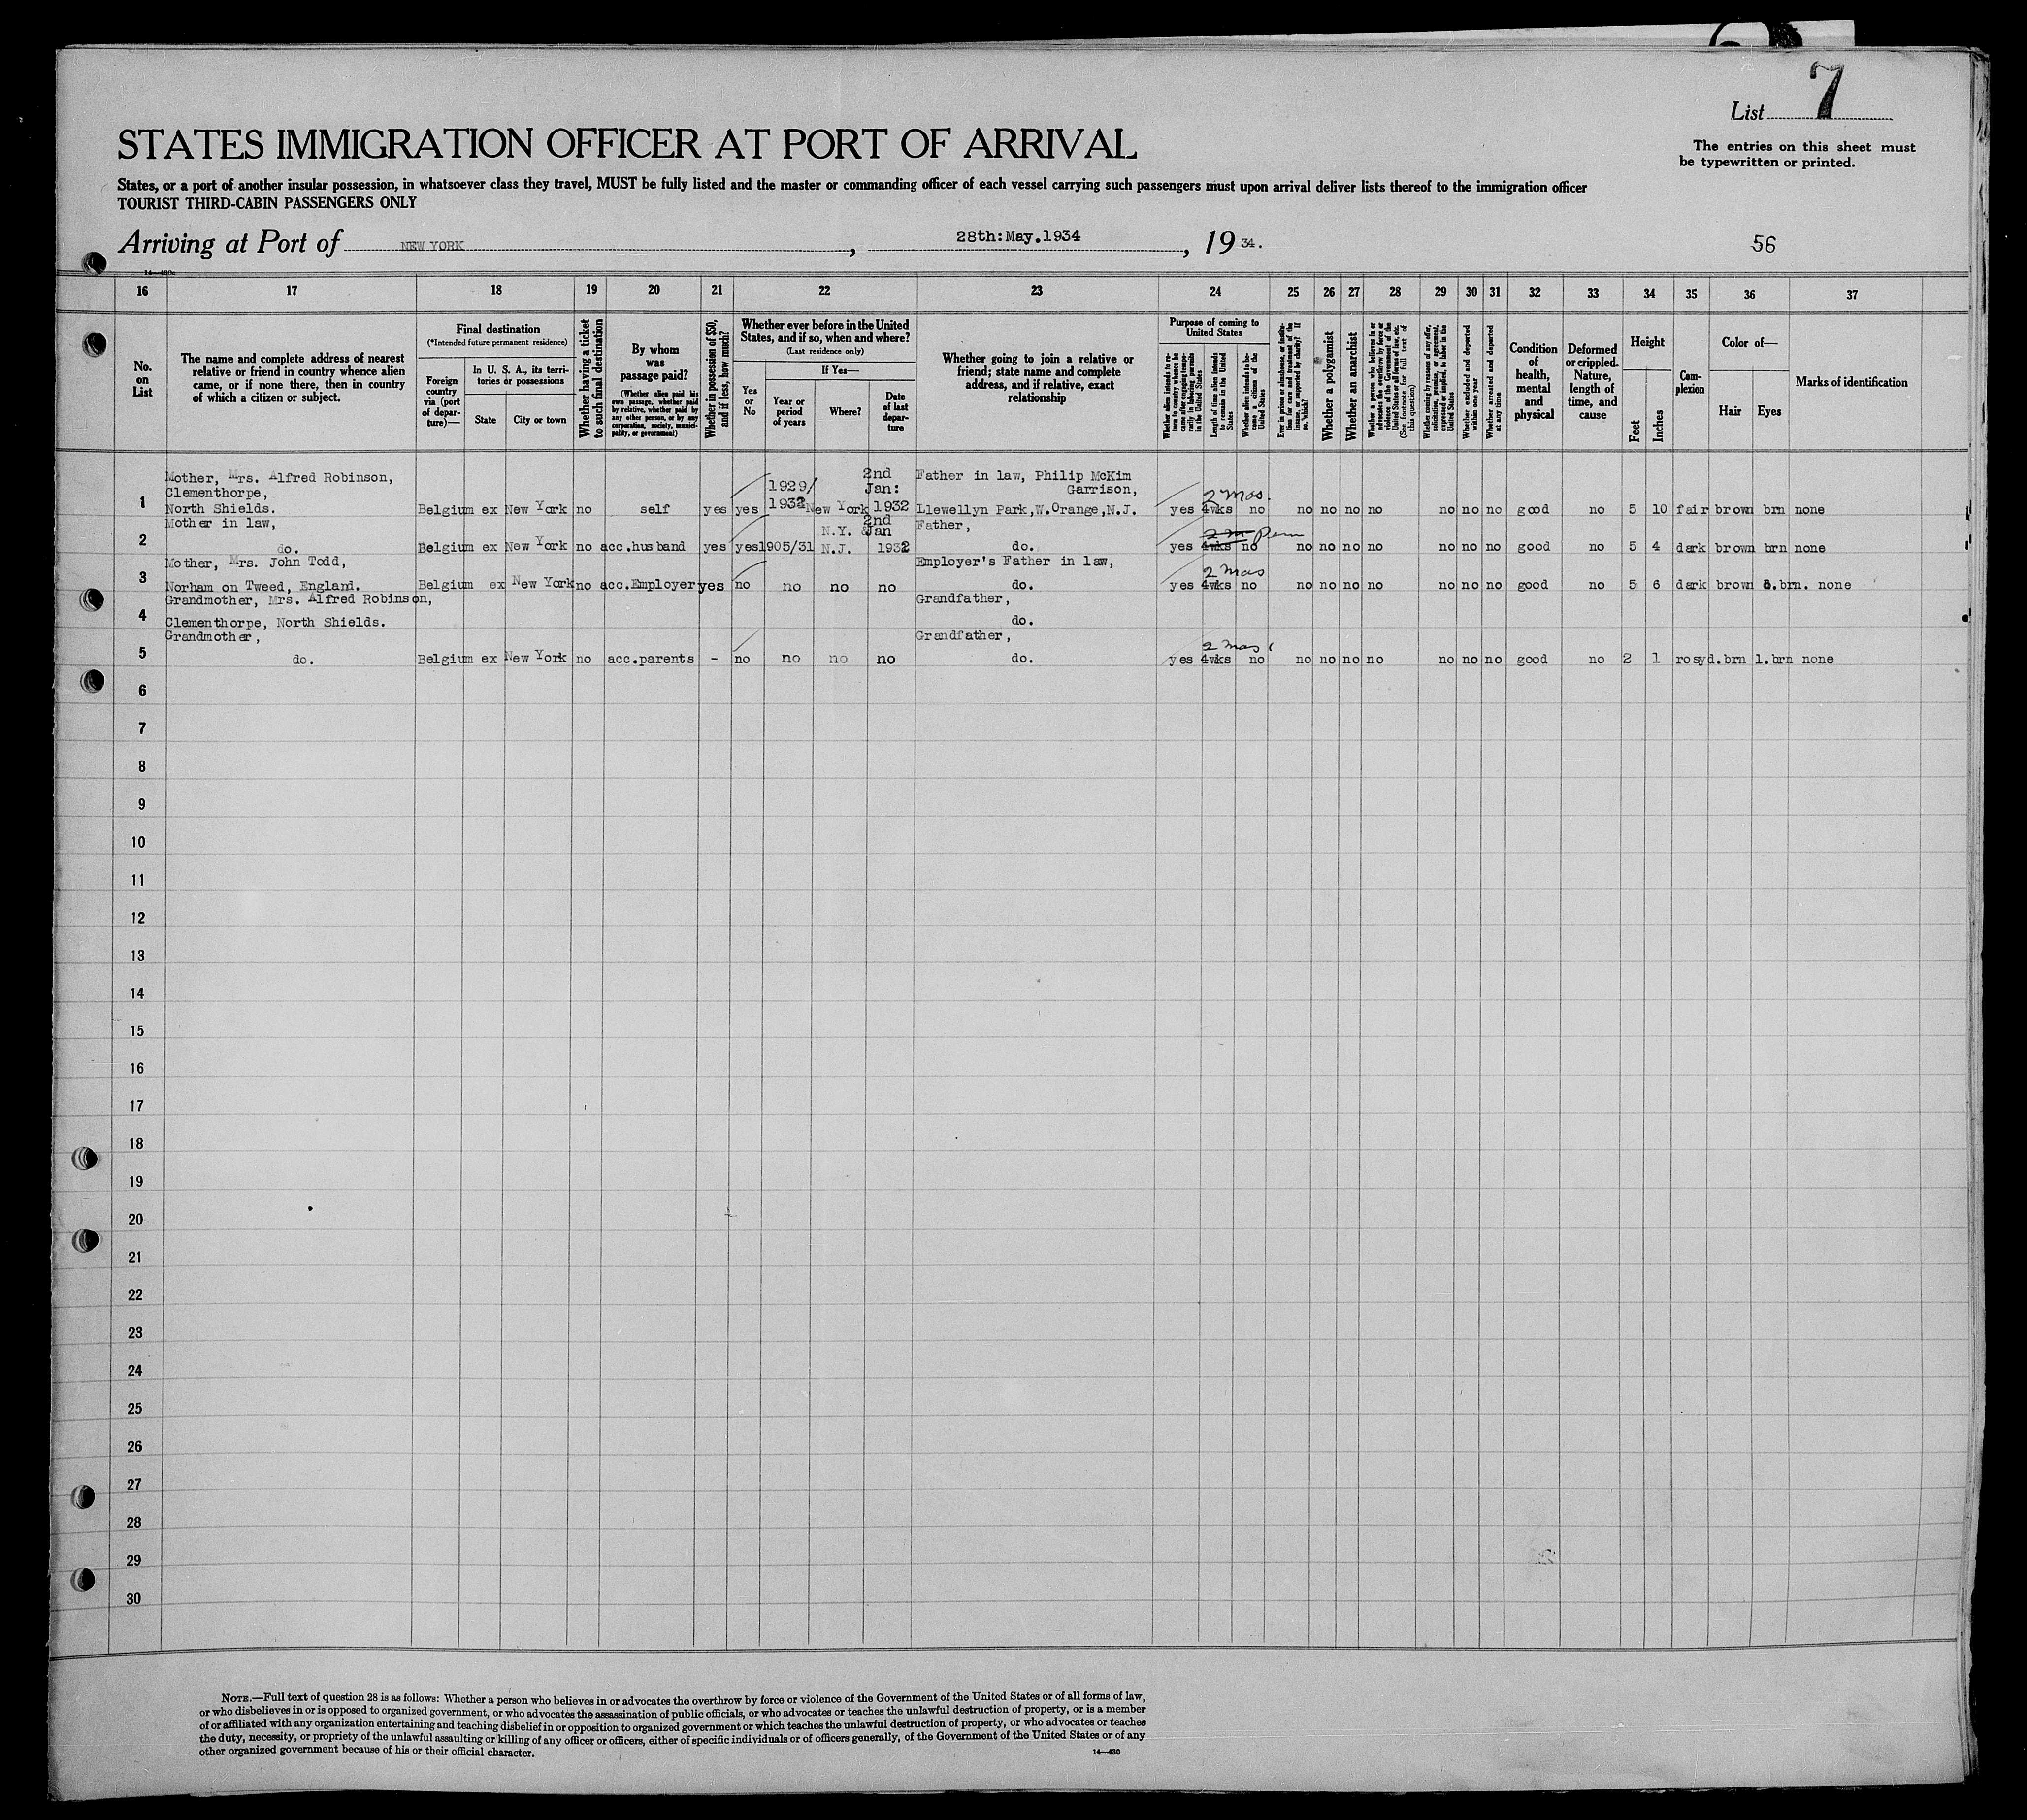 List 7
STATES IMMIGRATION OFFICER AT PORT OF ARRIVAL
The entries on this sheet must
be typewritten or printed.
States, or a port of another insular possession, in whatsoever class they travel, MUST be fully listed and the master or commanding officer of each vessel carrying such passengers must upon arrival deliver lists thereof to the immigration officer
TOURIST THIRD-CABIN PASSENGERS ONLY
Arriving at Port of NEW YORK, 28th:May.1934, 19 34.
56
16 17 18 19 20 21 22 23 24 25 26 27 28 29 30 31 32 33 34 35 36 37
No. on List
The name and complete address of nearest relative or friend in country whence alien came, or if none there, then in country of which a citizen or subject.
Final destination
(*Intended future permanent residence)
Foreign country via (port of departure)—
In U. S. A., its territories or possessions
State
City or town
Whether having a ticket to such final destination
By whom was passage paid?
(Whether alien paid his own passage, whether paid by relative, whether paid by any other person, or by any corporation, society, municipality, or government)
Whether in possession of $50, and if less, how much?
Whether ever before in the United States, and if so, when and where?
(Last residence only)
Yes or No
If Yes—
Year or period of years
Where?
Date of last departure
Whether going to join a relative or friend; state name and complete address, and if relative, exact relationship
Purpose of coming to United States
Length of time alien intends to remain in the United States
Whether alien intends to become a citizen of the United States
Whether a polygamist
Whether an anarchist
Whether excluded and deported within one year
Whether arrested and deported at any time
Condition of health, mental and physical
Deformed or crippled. Nature, length of time, and cause
Height
Feet
Inches
Complexion
Color of—
Hair
Eyes
Marks of identification
Mother, Mrs. Alfred Robinson, 2nd Father in law, Philip McKim
Clementhorpe, 1929/ Jan: Garrison, 2 mos.
1 North Shields. Belgium ex New York no self yes yes 1932 New York 1932 Llewellyn Park,W.Orange,N.J. yes 4wks no no no no no no no no good no 5 10 fair brown brn none
Mother in law, N.Y. & 2nd Jan Father, 2 m Perm
2 do. Belgium ex New York no acc.husband yes yes 1905/31 N.J. 1932 do. yes 4wks no no no no no no no no good no 5 4 dark brown brn none
Mother, Mrs. John Todd, Employer's Father in law, 2 mos
3 Norham on Tweed, England. Belgium ex New York no acc.Employer yes no no no no do. yes 4wks no no no no no no no no good no 5 6 dark brown brn. none
Grandmother, Mrs. Alfred Robinson, Grandfather,
4 Clementhorpe, North Shields. do.
Grandmother, Grandfather, 2 mos
5 do. Belgium ex New York no acc.parents - no no no no do. yes 4wks no no no no no no no no good no 2 1 rosy d.brn l.brn none
6
7
8
9
10
11
12
13
14
15
16
17
18
19
20
21
22
23
24
25
26
27
28
29
30
NOTE.—Full text of question 28 is as follows: Whether a person who believes in or advocates the overthrow by force or violence of the Government of the United States or of all forms of law,
or who disbelieves in or is opposed to organized government, or who advocates the assassination of public officials, or who advocates or teaches the unlawful destruction of property, or is a member
of or affiliated with any organization entertaining and teaching disbelief in or opposition to organized government or which teaches the unlawful destruction of property, or who advocates or teaches
the duty, necessity, or propriety of the unlawful assaulting or killing of any officer or officers, either of specific individuals or of officers generally, of the Government of the United States or of any
other organized government because of his or their official character.
14—430